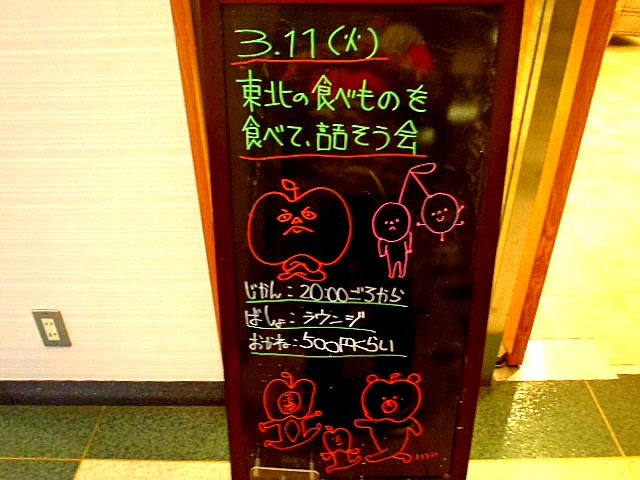 3.11(火)
東北の食べものを
食べて、話そう会
じかん:20:00ごろから
ばしょ:ラウンジ
おかね:500円くらい